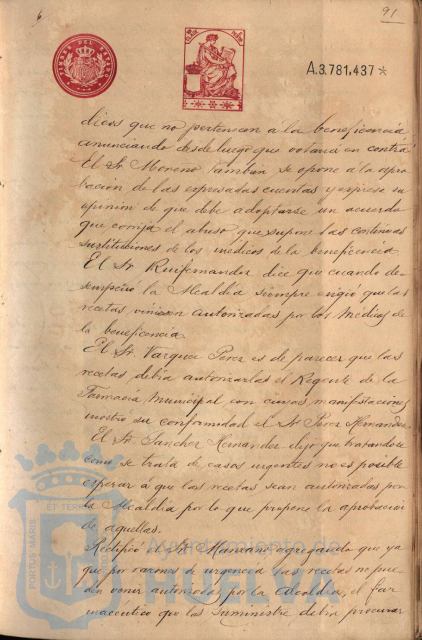 6
91
TIMBRE DEL ESTADO
A.3.781,437*
dicos que no pertenecen á la beneficencia,
anunciando desde luego que votaria en contra
El Sr. Moreno tambien se opone á la apro-
bacion de las expresadas cuentas y expresa su
opinion de que debe adoptarse un acuerdo
que corrija el abuso que supone las continuas
sustituciones de los medicos de la beneficencia
El Sr. dice que cuando de-
sempeñó la Alcaldia siempre exigió que las
recetas viniesen autorizadas por los Medicos de
la beneficencia.
El Sr. Vazquez Perez es de parecer que las
recetas debia autorizarlas el Regente de la
Farmacia Municipal con cuyas manifestaciones
mostró su conformidad el Sr. Perez Hernandez
El Sr. Sanchez Hernandez dijo que tratandose
como se trata de casos urgentes no es posible
esperar á que las recetas sean autorizadas por
la Alcaldia por lo que propone la aprobacion
de aquellas.
Rectificó el Sr. Manzano agregando que ya
que por razones de urgencia las recetas no pue-
den venir autorizadas por la Alcaldia, el far-
maceutico que las suministre debia procurar
PORTUS MARIS
ET TERRAE
Ayuntamiento de
HUELVA